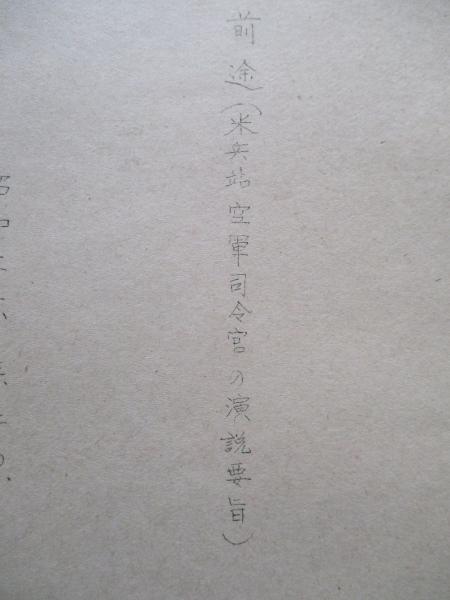 前途(米兵站空軍司令官の演説要旨)
昭和